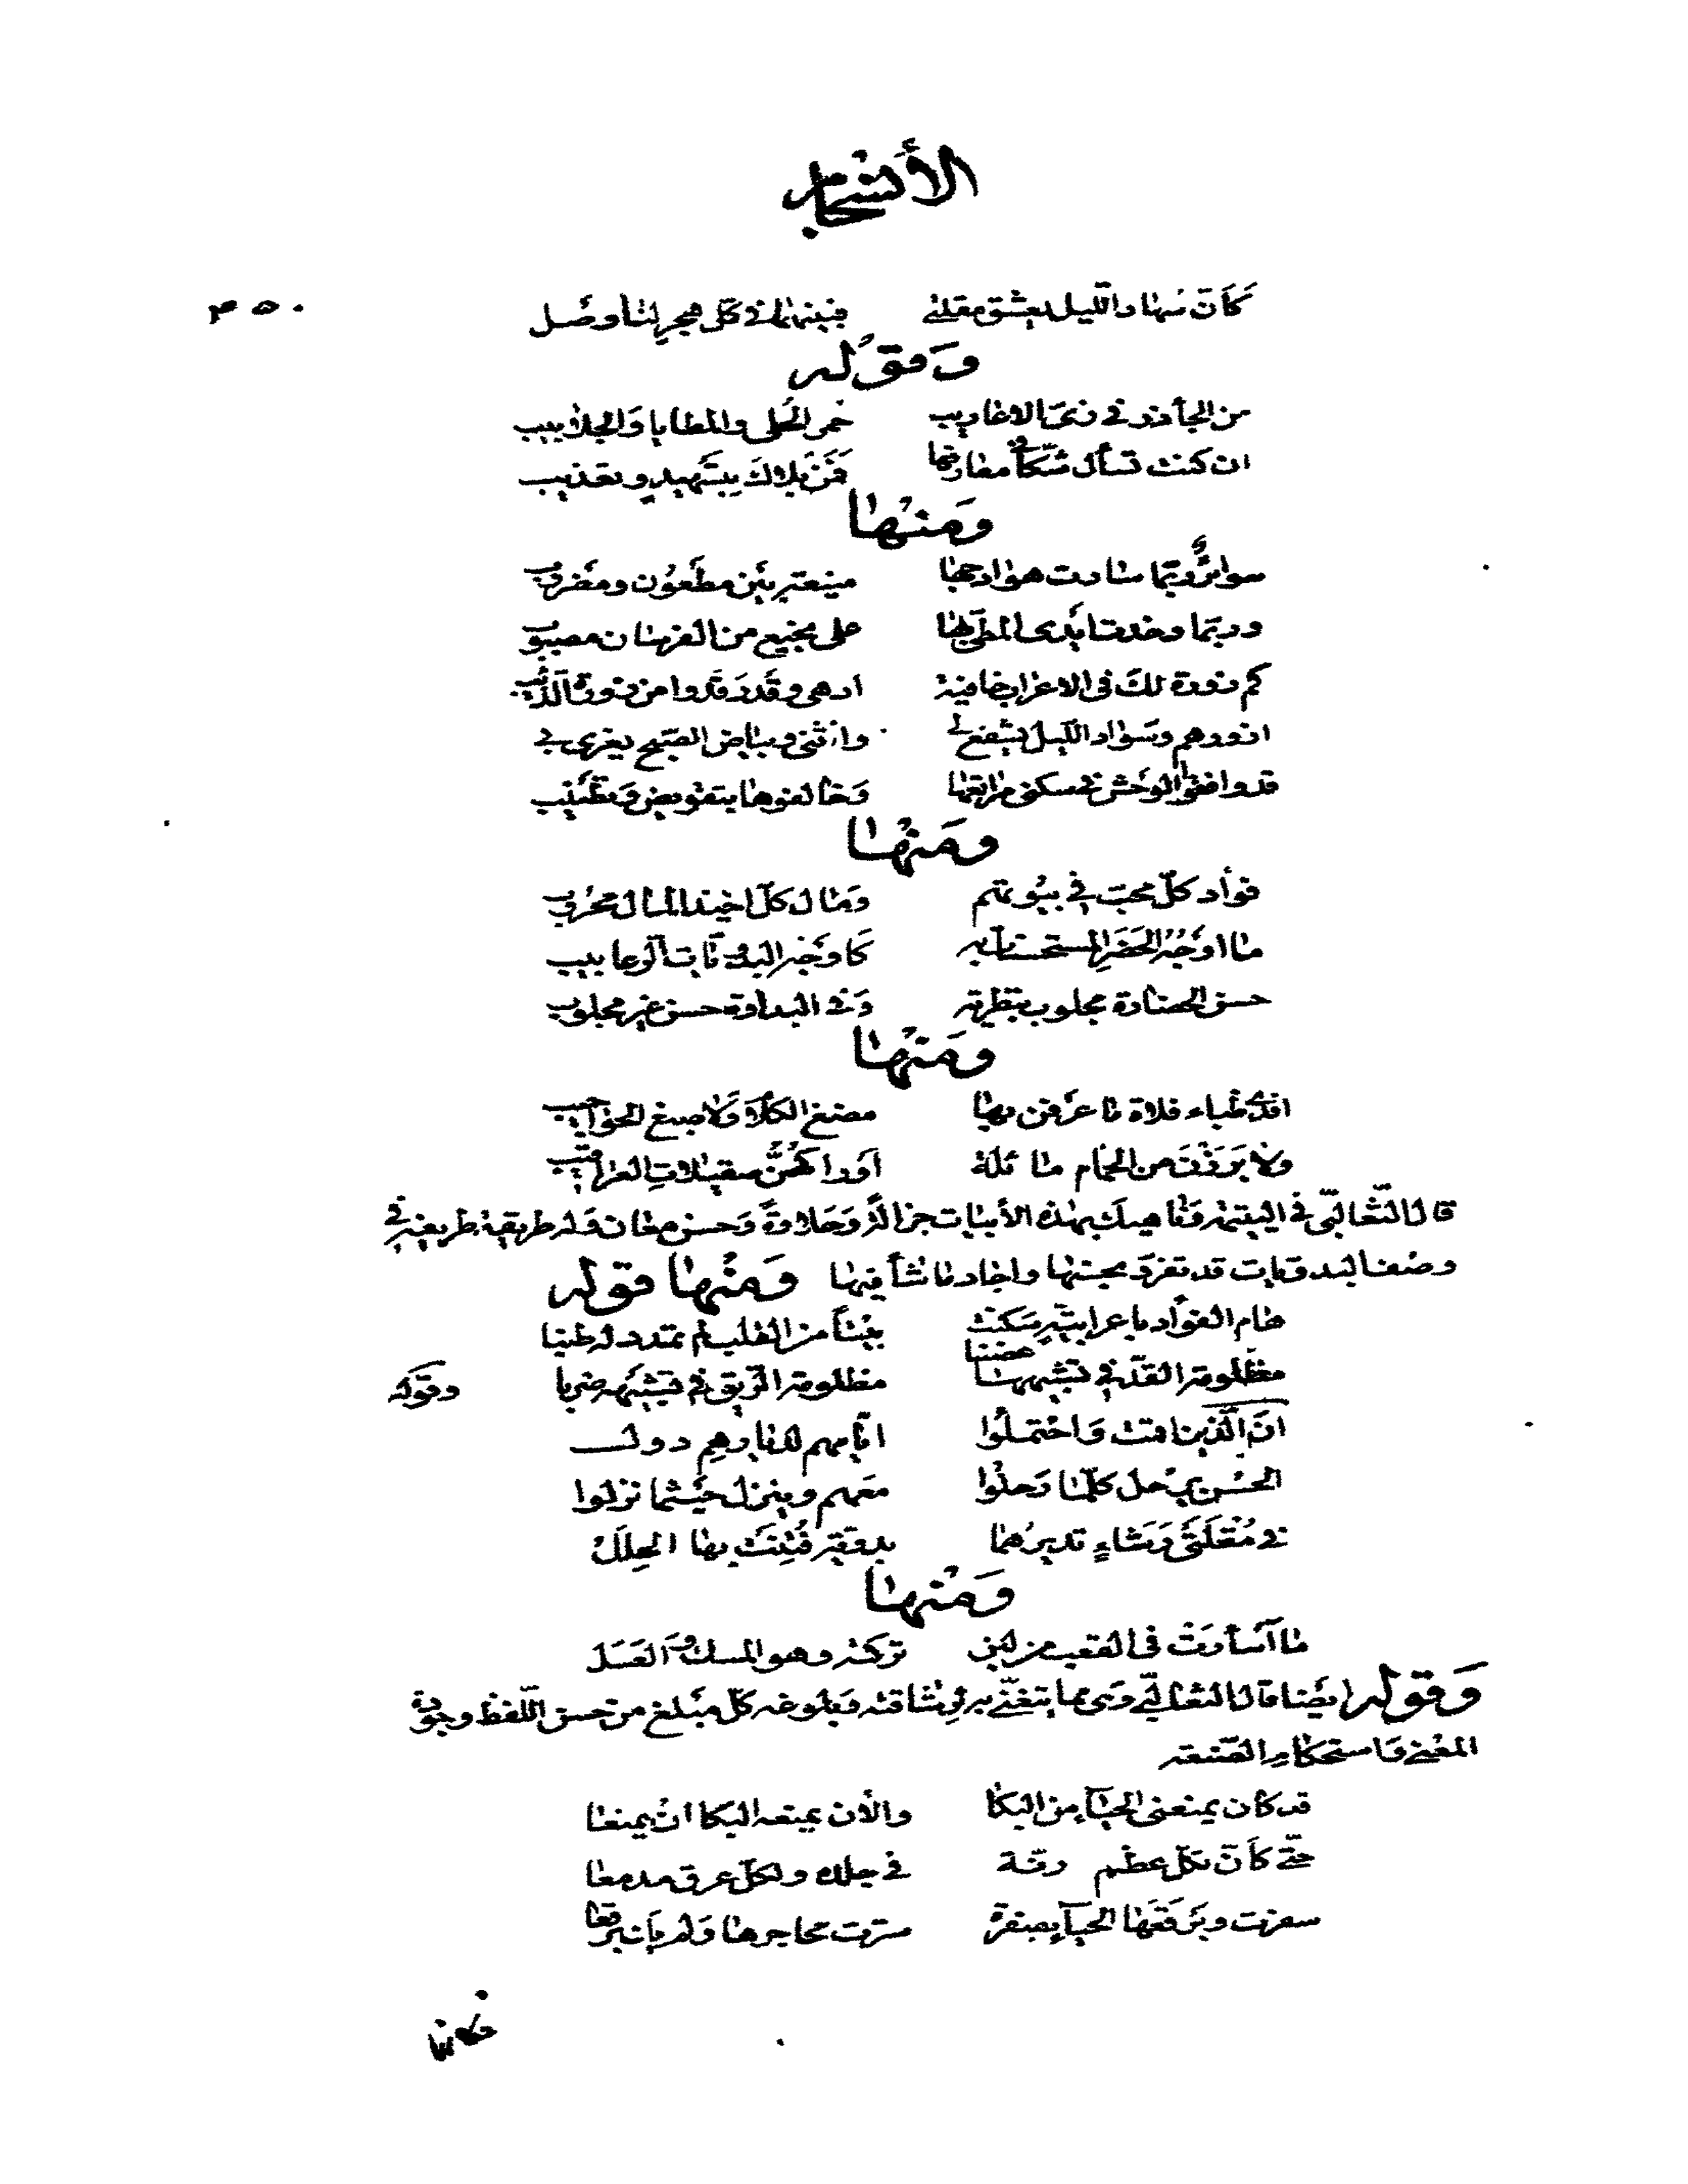 الأشجار
٣٥٠
كَأَنّ سُهاد اللّيل يعشق مقلتي فبينهما في كلّ هجرٍ لنا وصْل
وَقوْله
من الجآذر في زىّ الاعاريب حمر الحُلى والمطايا وَالجلابيب
ان كنت تسأل شكّا في معارفها فَمَنْ بَلاكَ بِتَسْهيدٍ وتعذيب
وَمنْها
سوائرٌ ربّما سارت هوادجها منيعة بيْن مطْعُون ومضْروب
وربّما وخدت أيْدى المطىّ بها على نجيع من الفرسان مصبوب
كم زورة لك في الاعراب خافية ادهى وقَد رَقدوا من زورة الذّئب
ازورهم وسَواد اللّيل يشفع لي وانْثنى وبياض الصّبح يغرى بي
قد وافقوا الوحْش في سكنى مراتعها وَخالفوها بتقويض وَتطْنيب
ومَنْها
فؤاد كلّ محبّ في بيُوتهم وَمال كلّ اخيذ المال محْروب
ما اوْجُه الحَضَرِ المستحسنات به كاوْجُه البدويّات الرّعابيب
حسن الحضارة مجلوب بتطرية وَفي البداوة حسن غير مجلوب
ومَنْها
افدى ظباء فلاة ما عرَفن بها مضغ الكلام وَلا صبغ الحواجيب
ولا بَرَزْنَ من الحمّام ماثلة اوْراكهُنَّ صقيلات العراقيب
قال الثّعالبّي في اليتيمة وَناهيك بهذه الأبيات جزالةً وَحَلاوةً وَحسن معان وَله طريقة ظريفة في
وصْف البدويّات قد تفرّد بحسنها واجاد ما شأ فيها وَمنْها قوله
هام الفؤاد باعرابيّةٍ سَكنتْ بيْتاً من القلب لم تمدد له طنبا
مظْلومة القدّ في تشبيهه غصْنا مظلومة الرّيق في تشْبيْهه ضربا وقوله
انّ الّذين اقمت وَاحْتملُوا ايّامهم لديارهِم دول
الحسْن يرْحل كلّما رَحلوُا معَهم وينزل حيْثما نزلوا
في مُقْلَتَىْ رَشاءٍ تديرُهما بدويّة فُتِنَتْ بها الحِلَلُ
وَمنْها
ما أسأرَتْ في القعب من لبن تركته وهو المسك وَالعَسَل
وَقوله ايضا قال الثعالبّي وَهي مما يتغنّى به لِرشاقته وَبلوغه كلّ مبْلغ من حسن اللّفظ وجودة
المعْنى وَاستحكام الصّنعة
قد كان يمنعنى الحيآء من البكا والأن يمنعه البكا انْ يمنعا
حتّى كَأنّ لكلّ عظْم رنّة في جلده ولكلّ عرق مدمعا
سفرت وبَرْقَعَها الحيآء بصفرة سترت محاجرها وَلم يَأ برقعا
فكأنها